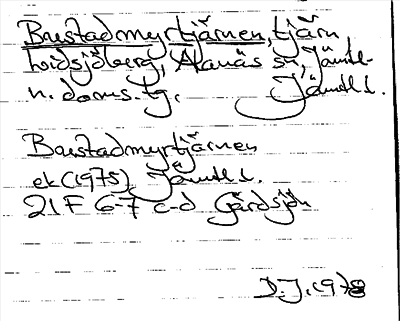 Bustadmyrtjärnen, tjärn
Hvidsjöberg, Alanäs sn, Jämtl.
n. doms. tg. Jämtl l.
Bustadmyrtjärnen
ek (1975) Jämtl l.
21F 6-7 c-d Gärdsjön
D.J. 1978